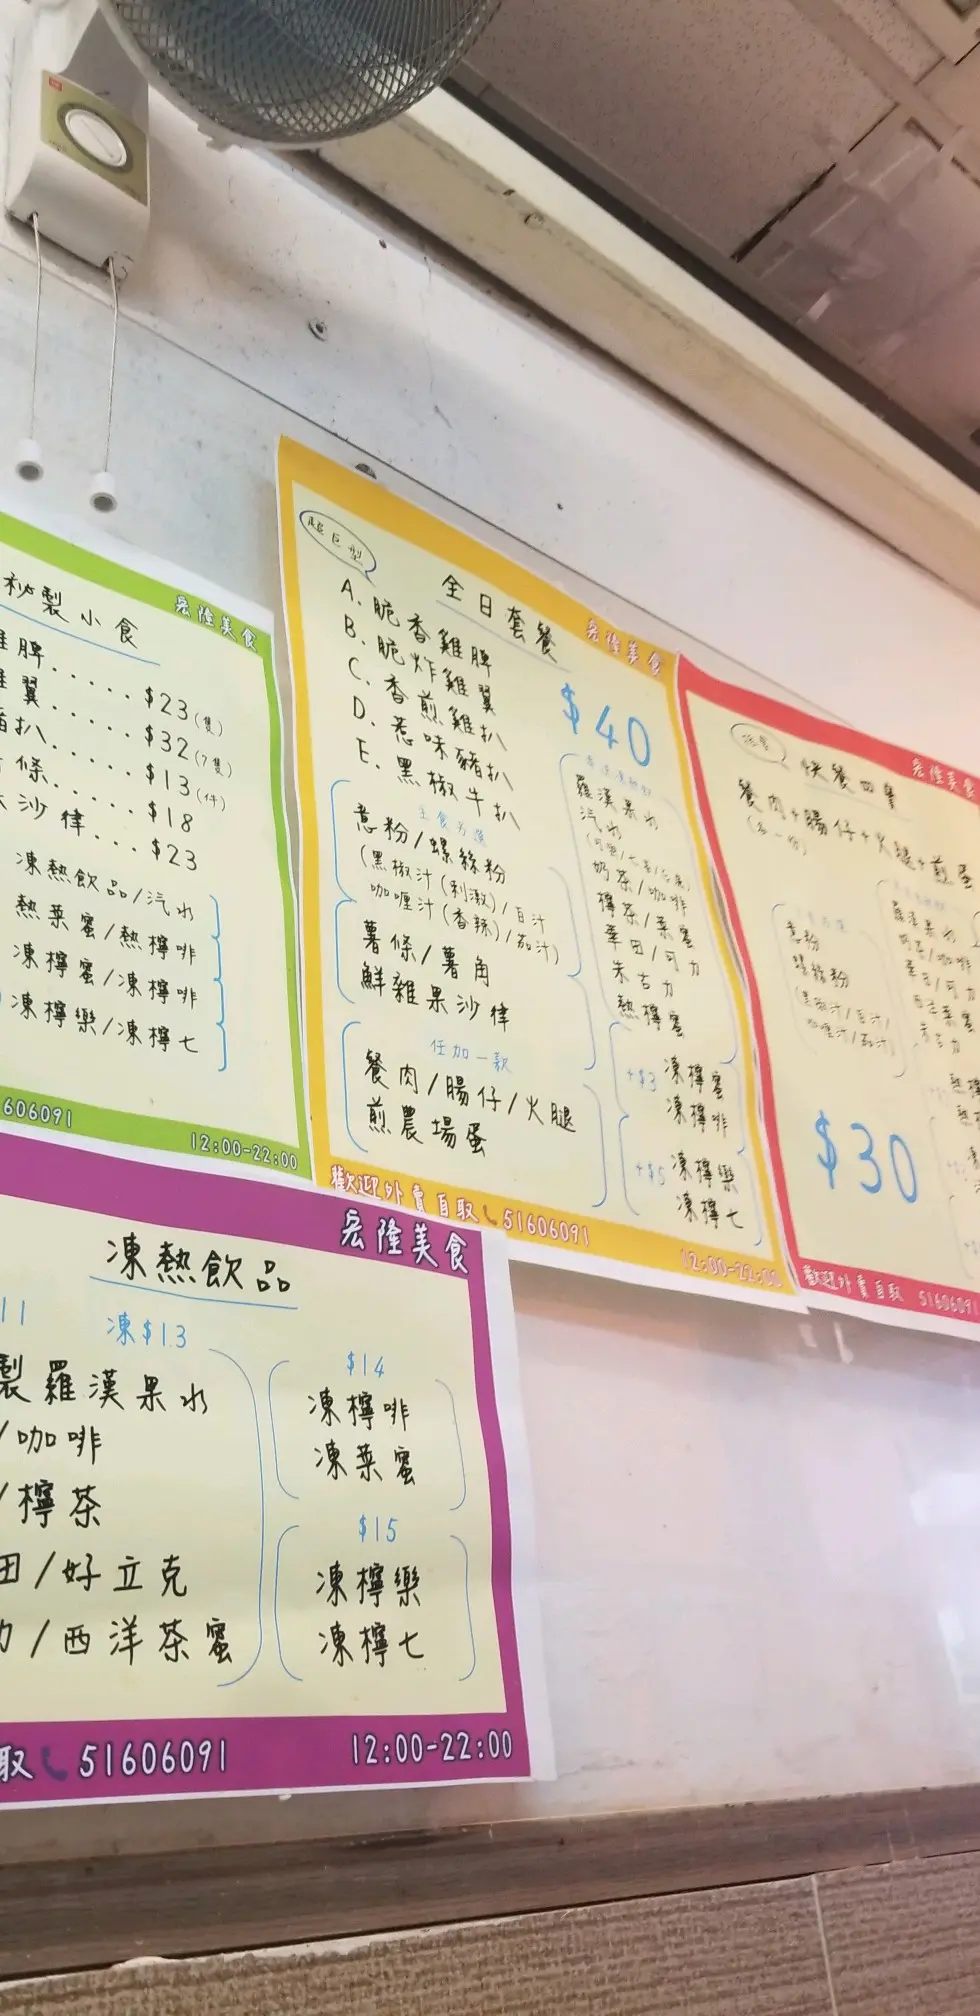 秘製小食
宏隆美食
脾.....$23(隻)
翼.....$32(7隻)
扒.....$13(件)
條.....$18
沙律...$23
凍熱飲品/汽水
熱菜蜜/熱檸啡
凍檸蜜/凍檸啡
凍檸樂/凍檸七
606091
12:00-22:00
超巨型
全日套餐
宏隆美食
$40
A. 脆香雞脾
B. 脆炸雞翼
C. 香煎雞扒
D. 惹味豬扒
E. 黑椒牛扒
主食另選
意粉/螺絲粉
(黑椒汁(刺激)/白汁
咖喱汁(香辣)/茄汁)
薯條/薯角
鮮雜果沙律
任加一款
餐肉/腸仔/火腿
煎農場蛋
羅漢果水
汽水
奶茶/咖啡
檸茶/菜蜜
華田/可力
朱古力
熱檸蜜
+$3 凍檸蜜
凍檸啡
+$5 凍檸樂
凍檸七
歡迎外賣自取 51606091
12:00-22:00
快餐四寶
宏隆美食
餐肉+腸仔+火腿+煎蛋
意粉
螺絲粉
(黑椒汁/白汁/
咖喱汁/茄汁)
羅漢果水
奶茶/咖啡
華田/可力
$30
歡迎外賣自取 51606091
宏隆美食
凍熱飲品
11 凍$13
製羅漢果水
/咖啡
/檸茶
田/好立克
/西洋菜蜜
$14
凍檸啡
凍菜蜜
$15
凍檸樂
凍檸七
取 51606091
12:00-22:00